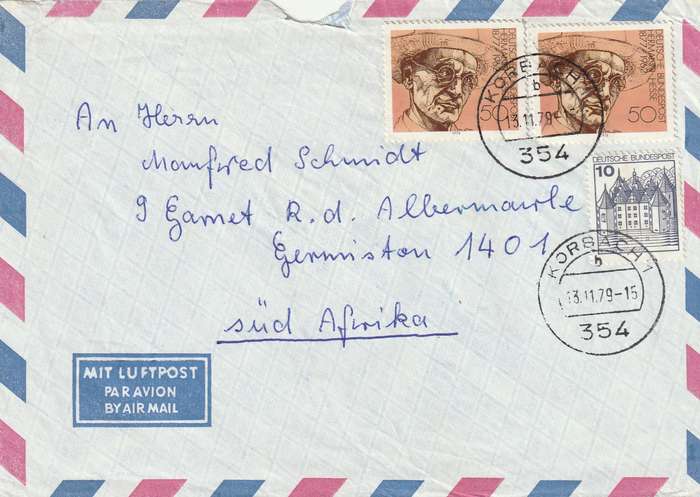 DEUTSCHE BUNDESPOST
HERMANN HESSE
1877-1962
50
DEUTSCHE BUNDESPOST
HERMANN
HESSE
1877-1962
50
KORBACH 1
b
13.11.79-
354
10 DEUTSCHE BUNDESPOST
KORBACH 1
h
13.11.79-15
354
An Herrn
Manfred Schmidt
9 Garnet R.d. Albermarle
Germiston 1401
süd Afrika
MIT LUFTPOST
PAR AVION
BY AIR MAIL